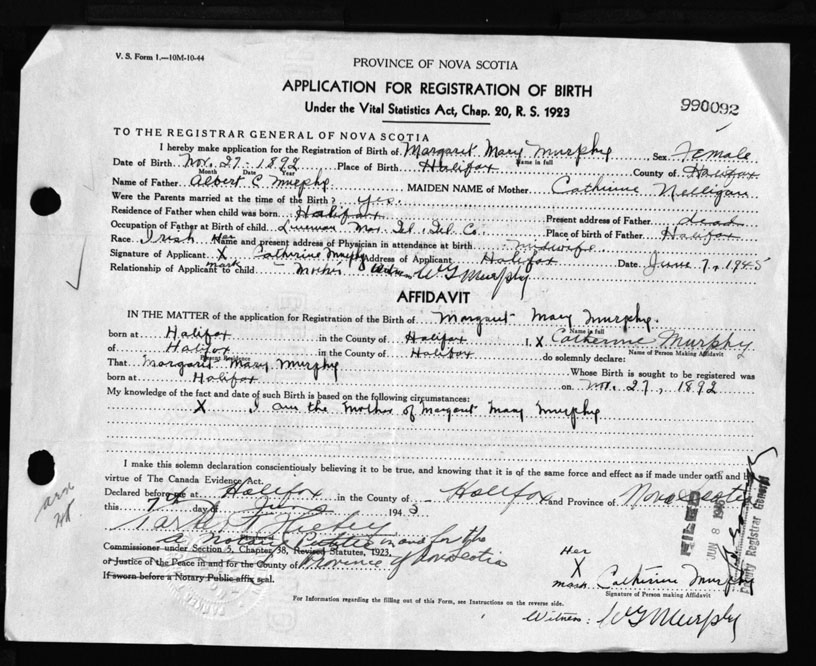 V. S. Form 1.—10M-10-44
PROVINCE OF NOVA SCOTIA
APPLICATION FOR REGISTRATION OF BIRTH
Under the Vital Statistics Act, Chap. 20, R. S. 1923
990092
TO THE REGISTRAR GENERAL OF NOVA SCOTIA
I hereby make application for the Registration of Birth of Margaret Mary Murphy, Sex Female
Name in full
Date of Birth Nov. 27 - 1892 Place of Birth Halifax County of Halifax
Month Date Year
Name of Father Albert C Murphy MAIDEN NAME of Mother Catherine Nelligan
Were the Parents married at the time of the Birth? Yes.
Residence of Father when child was born Halifax Present address of Father dead
Occupation of Father at Birth of child Lineman Mar. Tel. Tel. Co. Place of birth of Father Halifax
Race Irish Name and present address of Physician in attendance at birth midwife
Her
Signature of Applicant X Catherine Murphy Address of Applicant Halifax Date June 7, 1945
mark
Relationship of Applicant to child Mother W G Murphy
AFFIDAVIT
IN THE MATTER of the application for Registration of the Birth of Margaret Mary Murphy.
Name in full
born at Halifax in the County of Halifax I, X Catherine Murphy
Name of Person Making Affidavit
of Halifax in the County of Halifax do solemnly declare:
Present Residence
That Margaret Mary Murphy Whose Birth is sought to be registered was
born at Halifax on Nov. 27, 1892
My knowledge of the fact and date of such Birth is based on the following circumstances:
X I am the Mother of Margaret Mary Murphy
I make this solemn declaration conscientiously believing it to be true, and knowing that it is of the same force and effect as if made under oath and by
virtue of The Canada Evidence Act.
Declared before me at Halifax in the County of Halifax and Province of Nova Scotia
this 7th day of June 194
A Notary Public in and for the
Commissioner under Section 5, Chapter 38, Revised Statutes, 1923,
or Justice of the Peace in and for the County of Province of Nova Scotia
If sworn before a Notary Public affix seal.
FILED
Deputy Registrar General
Her
X
mark Catherine Murphy
Signature of Person making Affidavit
For Information regarding the filling out of this Form, see Instructions on the reverse side.
Witness: W G Murphy